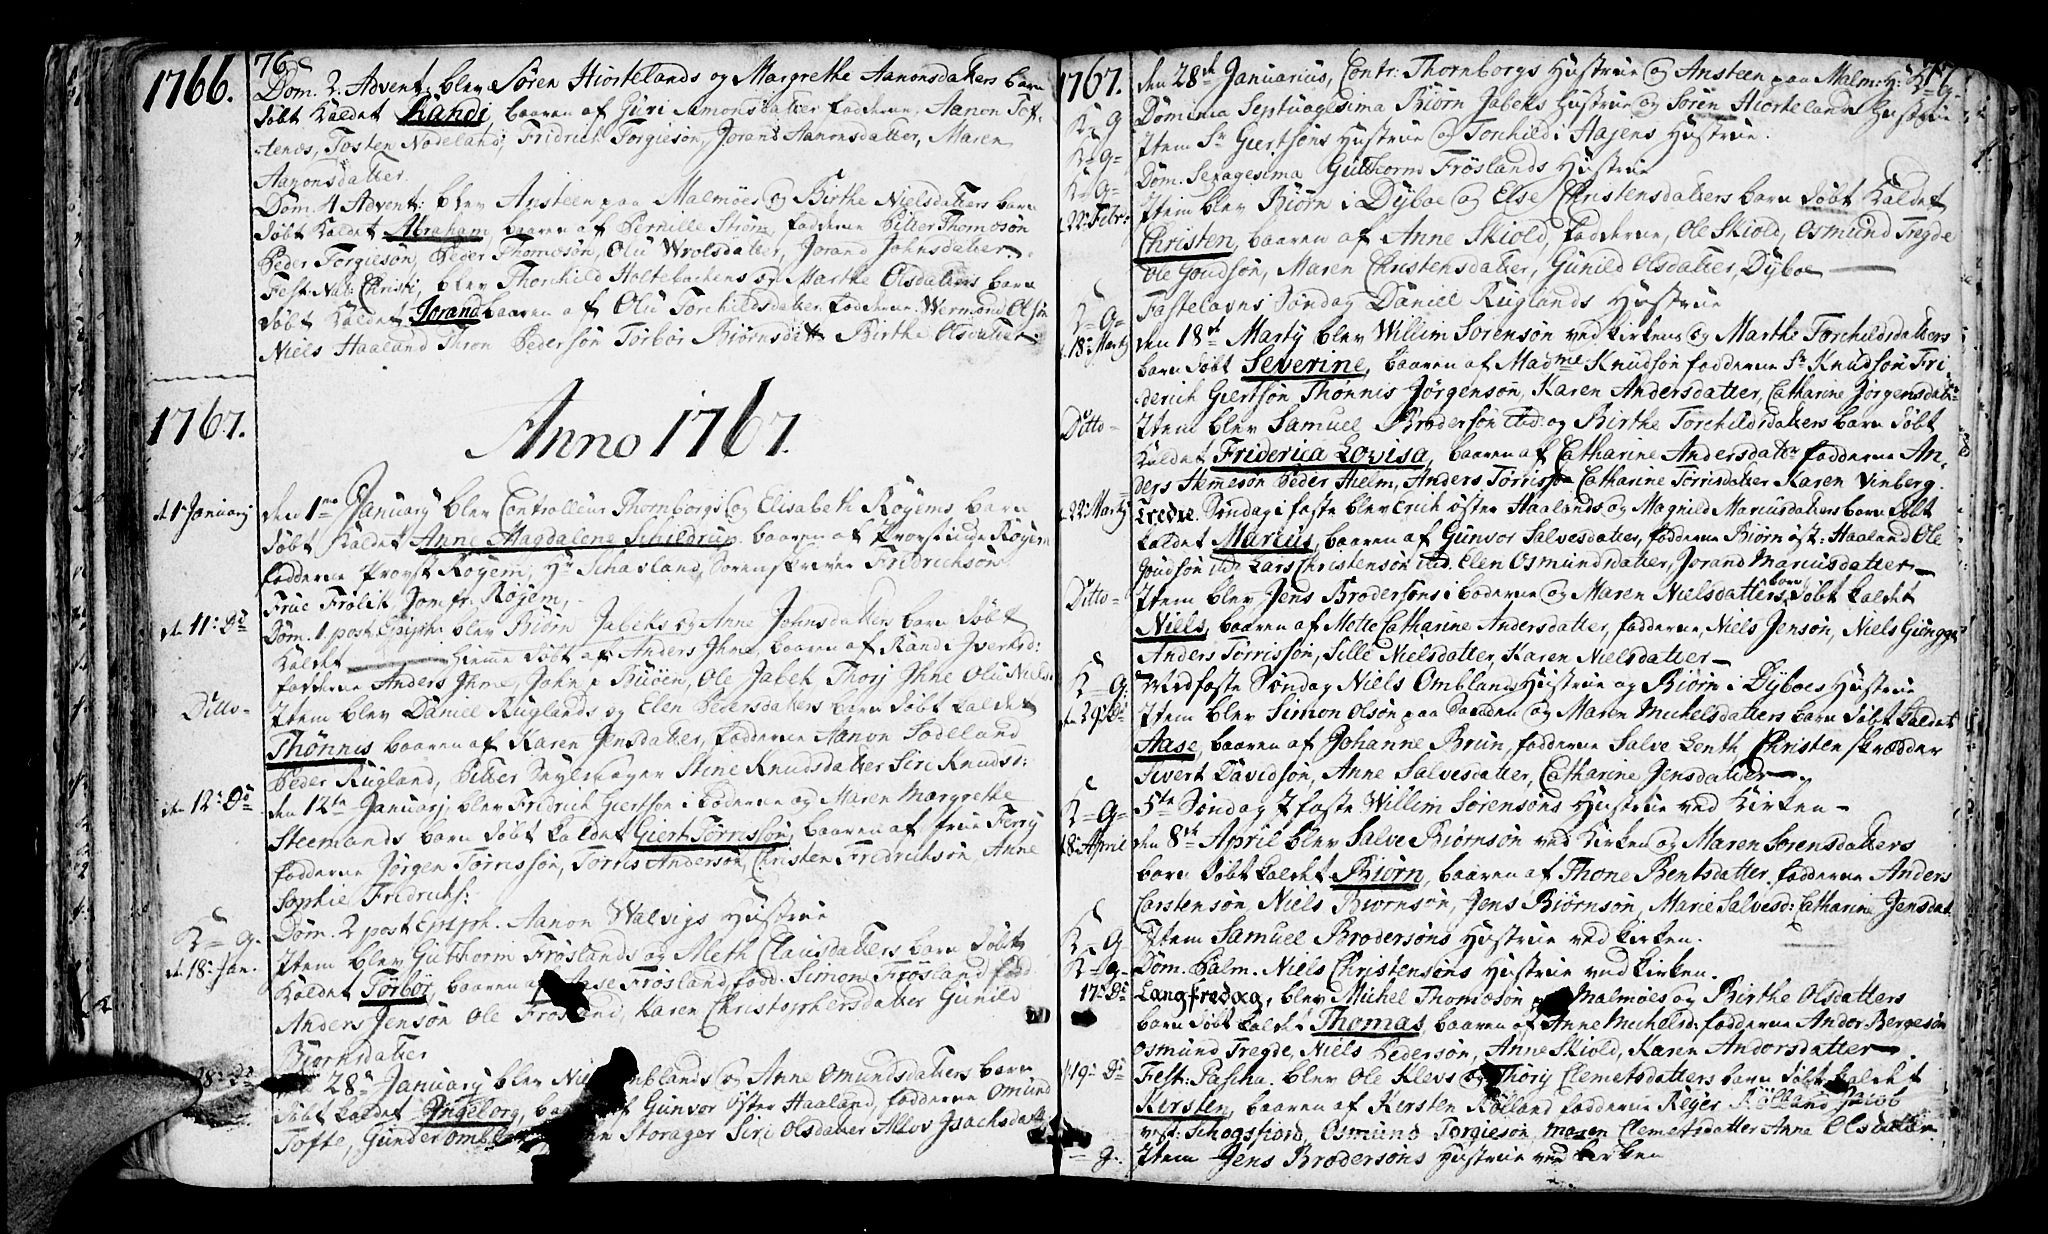 1766.
76
Dom. 2. Advent: blev Sören Hiortelands og Margrethe Aanonsdatters barn
döbt kaldet Randi, baaren af Guri Simonsdatter fadderne, Aanon Tof-
tenes, Tosten Nodeland, Fridrich Torgiesön, Jorand Aanonsdatter, Maren
Aanonsdatter.
Dom. 4 Advent: blev Ansteen paa Malmöes og Birthe Nielsdatters barn
döbt kaldet Abraham, baaren af Pernille Ström, fadderne Petter Thomösön
Peder Torgiesön, Peder Thomesön, Olu Wrolsdatter, Jorand Johnsdatter.
Fest: Nat: Christi, blev Thorchild Holtebackens og Marthe Olsdatters barn
döbt kaldet Jorand baaren af Olu Torchildsdatter fadderne Wermond Olsön
Niels Haaland Thron Pedersön Torbor Biörnsdatt Birthe Olsdatter.
1767.
Anno 1767.
d. 1 Januarij
den 1me January blev Controlleur Thornborgs og Elisabeth Röyems barn
döbt kaldet Anne Magdalene Schieldrup. baaren af Provstinde Röyem
fadderne Provst Röyem, Hr Schavland, Sorenskriver Fridrichsön
Frue Frölik, Jomfr. Röyem,
d. 11 Do
Dom. 1. post Epiph: blev Biörn Jabeks og Anne Johnsdatters barn döbt
kaldet ——— hiemme döbt af Anders Ihme, baaren af Randi Iversd:
fadderne Anders Ihme, John Buöen, Ole Jabek Thorj Ihne Olu Niels:
Ditto-
Item blev Daniel Ruglands og Elen Pedersdatters barn döbt kaldet
Thönnis baaren af Karen Jensdatter, fadderne Aanon Sodeland
Peder Rugland, Petter Seylmager Stine Knudsdatter Siri Knudsd:
d. 12 Do
den 12te January, blev Fridrich Giertsön i boderne og Maren Margrethe
Steemands barn döbt kaldet Giert Törrissön, baaren af frue Ferry
fadderne Jörgen Törrissön, Törris Andersön, Christen Fredrichsön, Anne
Sophie Fridrichs:
K= G.
Dom. 2 post Epiph. Aanon Walvigs Hustrue
d. 18 Jan.
Item blev Guthorm Fröslands og Meth Clausdatters barn döbt
kaldet Torbor, baaren af Aase Frösland, fadd. Simon Frösland
Anders Jensön Ole Frösland, Karen Christophersdatter Gunild
Biörnsdatter
28 Do
28de January blev Niels Omblands og Anne Omundsdatters barn
döbt kaldet Ingeborg, baaren af Gunvor Öster Haaland, fadderne Omund
Tofte, Gunder Ombl Storager Siri Olsdatter Allov Isachsdatt
1767.
77
den 28de Januarius, Contr: Thornborgs Hustrue og Ansteen paa Malm: H: K=G
K=G
Dominica Septuagesima Biörn Jabeks Hustrue og Sören Hiortelands Hustrue
K=g=
Item Sr Giertsöns Hustrue og Torchild i Hagens Hustrue.
K=g=
Dom. Sexagesima Gutthorm Fröslands Hustrue
22 Febr:
Item blev Biörn i Dyboe og Else Christensdatters barn döbt kaldet
Christen, baaren af Anne Skiold, fadderne, Ole Skiold, Osmund Tregde
Ole Goudsön, Maren Christensdatter, Gunild Olsdatter, Dyboe
K=G=
Fastelavns Söndag Daniel Ruglands Hustrue
18 Marty
den 18de Marty blev Willim Sörensön ved kirken og Marthe Torchildsdatters
barn döbt Severine, baaren af Madme Knudsön fadderne Sr Knudsön Fri-
derich Giertsön Thönnis Jörgensön, Karen Andersdatter, Catharine Jörgensdatt
Ditto-
Item blev Samuel Brodersön ibd: og Birthe Torchildsdatters barn döbt
kaldet Friderica Lovisa, baaren af Catharine Andersdattr fadderne An-
ders Peder Hielm, Anders Törrissön Catharine Törrisdatter Karen Vinberg.
22 Marty
Tredie Söndag i faste blev Erich Öster Haalands og Magnild Mariusdatters barn döbt
kaldet Marcus, baaren af Gunvor Salvesdatter, fadderne Biörn öst: Haaland Ole
Goudsön ibid Lars Christensön ibd. Elen Osmundsdatter, Jorand Marcusdatter
Ditto-
Item blev Jens Brodersöns i boderne og Maren Nielsdatters barn döbt kaldet
Niels, baaren af Mette Catharine Andersdatter, fadderne, Niels Jensön, Niels Gunggi
Anders Törrissön, Sille Nielsdatter, Karen Nielsdatter
K=G.
Midfaste Söndag Niels Omblands Hustrue og Biörn i Dyboes Hustrue
d. 29 Do
Item blev Simon Olsön paa Sanden og Maren Michelsdatters barn döbt kaldet
Aase, baaren af Johanne Brun, fadderne Salve Lenth, Christen skrædder
Sivert Davidsön, Anne Salvesdatter, Catharine Jensdatter
K=G=
5te Söndag i faste Willim Sörensöns Hustrue ved Kirken
d 8 April
den 8de April blev Salve Biörnsön ved Kirken og Maren Sörensdatters
barn döbt kaldet Biörn, baaren af Thone Bentsdatter, fadderne Anders
Carstensön Niels Biörnsön, Jens Biörnsön, Marie Salvesd: Catharine Jensdat
K=G
Item Samuel Brodersöns Hustrue ved kirken.
K=G=
Dom. Palm. Niels Christensöns Hustrue ved kirken.
17 Do
Langfredag, blev Michel Thomesön Malmöes og Birthe Olsdatters
barn döbt kaldet Thomas, baaren af Anne Michelsd: fadderne Ander Bergesön
Osmund Tregde, Niels Pedersön, Anne Skiold, Karen Andersdatter
19 Do
Fest: Pascha. blev Ole Klevs og Thorj Clemetsdatters barn döbt kaldet
Kersten, baaren af Kersten Rölland fadderne Reyer Rölland Jacob
vest: Schogsfiord, Osmund Torgiesön Maren Clemetsdatter Anne Olsdatter
= g.
Item Jens Brodersöns Hustrue ved kirken